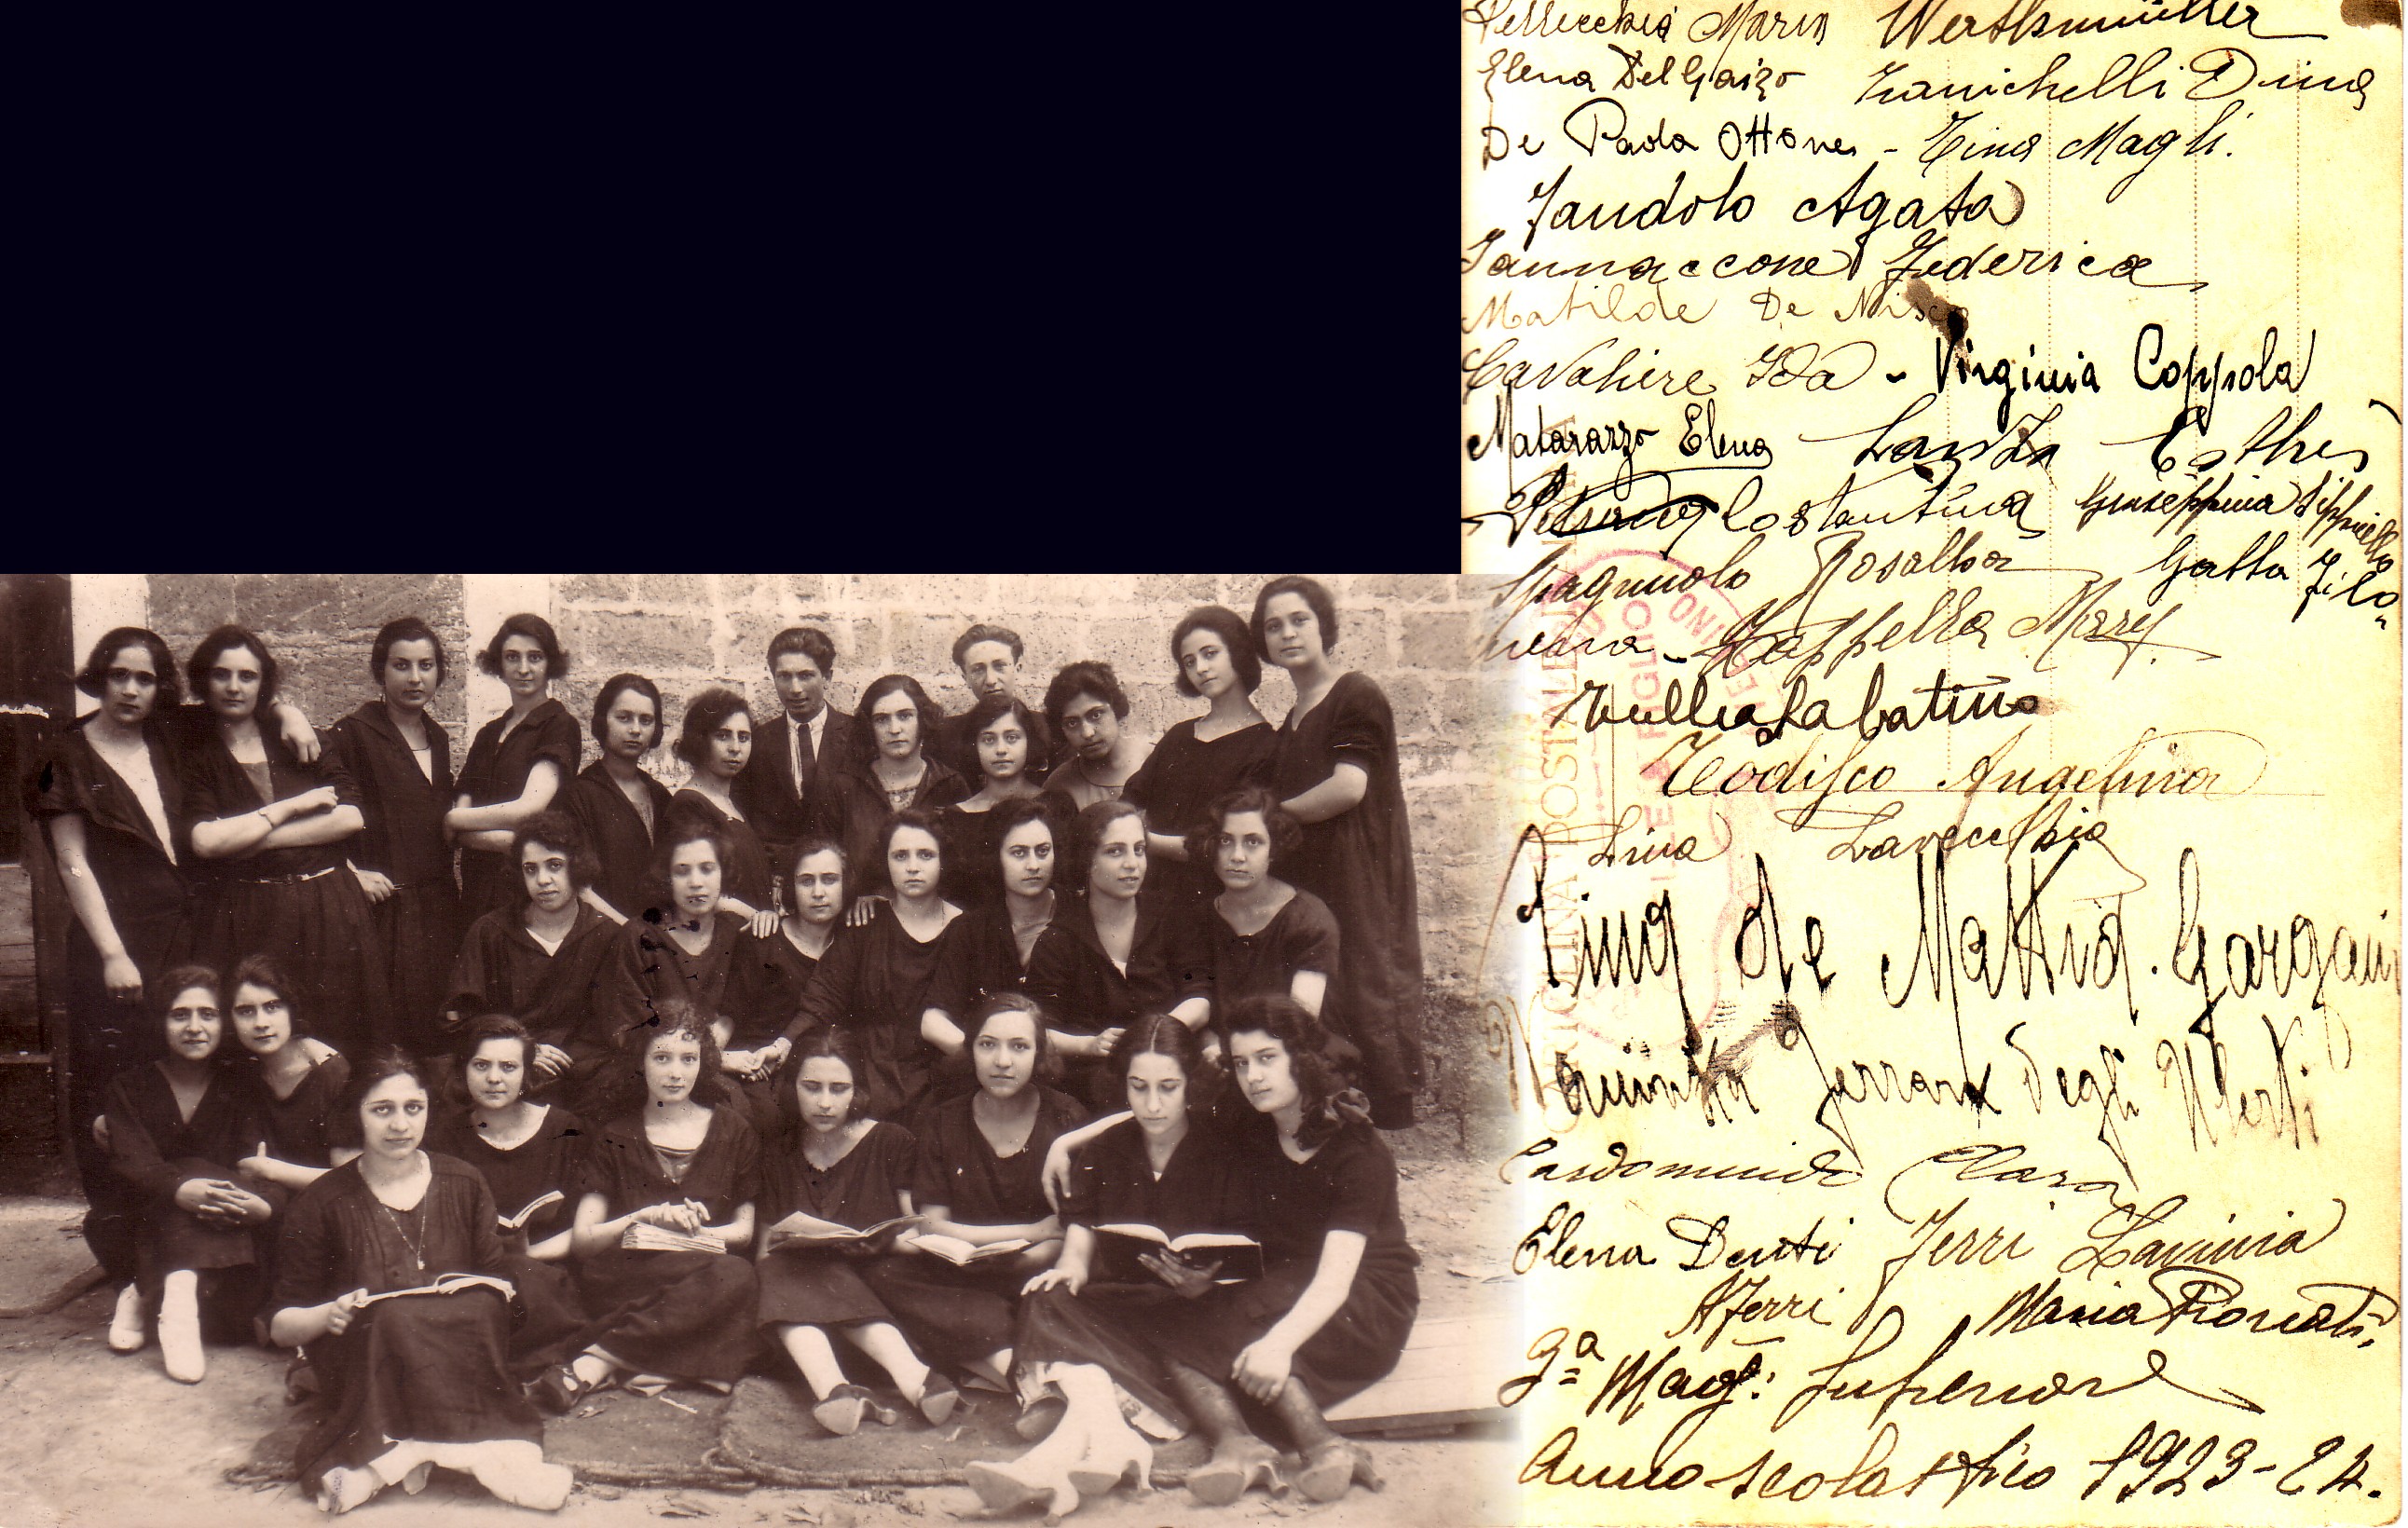 Pellecchia Maria Werthmüller
Elena Del Gaizo Zanichelli Dina
De Paola Ottone - Tina Magli.
Jandolo Agata
Iannaccone Federica
Matilde De Nisco
Cavaliere Ida - Virginia Coppola
Matarazzo Elena Lanza Esther
Costantina Giuseppina
Spagnuolo Rosalba Gatta Filo-
mena - Zappella Mary.
Tullia Sabatino
Todisco Angelina
Lina Lavecchia
Tina de Mattia. Gargani
Ferrara degli Uberti
Clara
Elena Denti Ferri Lavinia
A Ferri Maria Fioretti.
3ª Mag: Superiore
Anno scolastico 1923-24.
CARTOLINA POSTALE